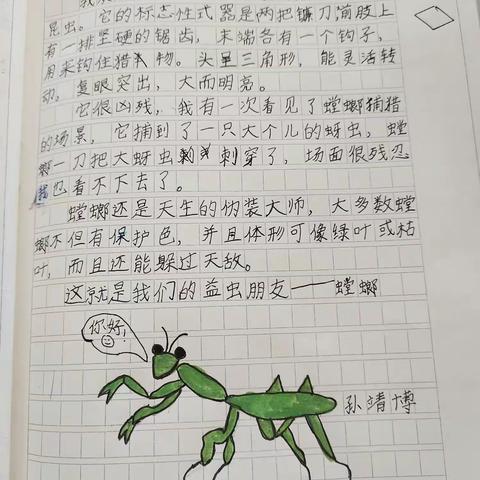 昆虫。它的标志性式器是两把镰刀前肢上
有一排坚硬的锯齿，末端各有一个钩子，
用来钩住猎物。头呈三角形，能灵活转
动，复眼突出，大而明亮。
它很凶残，我有一次看见了螳螂捕猎
的场景，它捕到了一只大个儿的蚜虫，螳
螂一刀把大蚜虫刺穿了，场面很残忍
我忍看不下去了。
螳螂还是天生的伪装大师，大多数螳
螂不但有保护色，并且体形可像绿叶或枯
叶，而且还能躲过天敌。
这就是我们的益虫朋友——螳螂
你好！
孙靖博